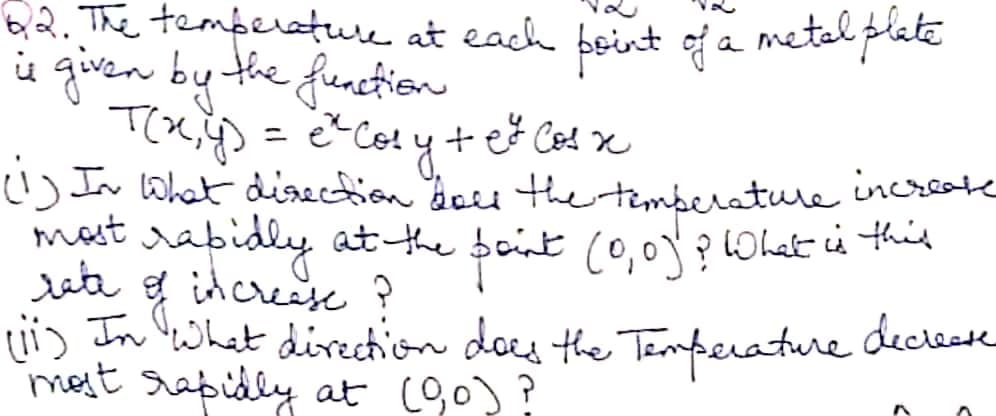 Q2. The temperature at each point of a metal plate
is given by the function
T(x,y) = e^x Cos y + e^y Cos x
(i) In What direction does the temperature increase
most rapidly at the point (0,0)? What is this
rate of increase ?
(ii) In What direction does the Temperature decrease
most rapidly at (0,0) ?